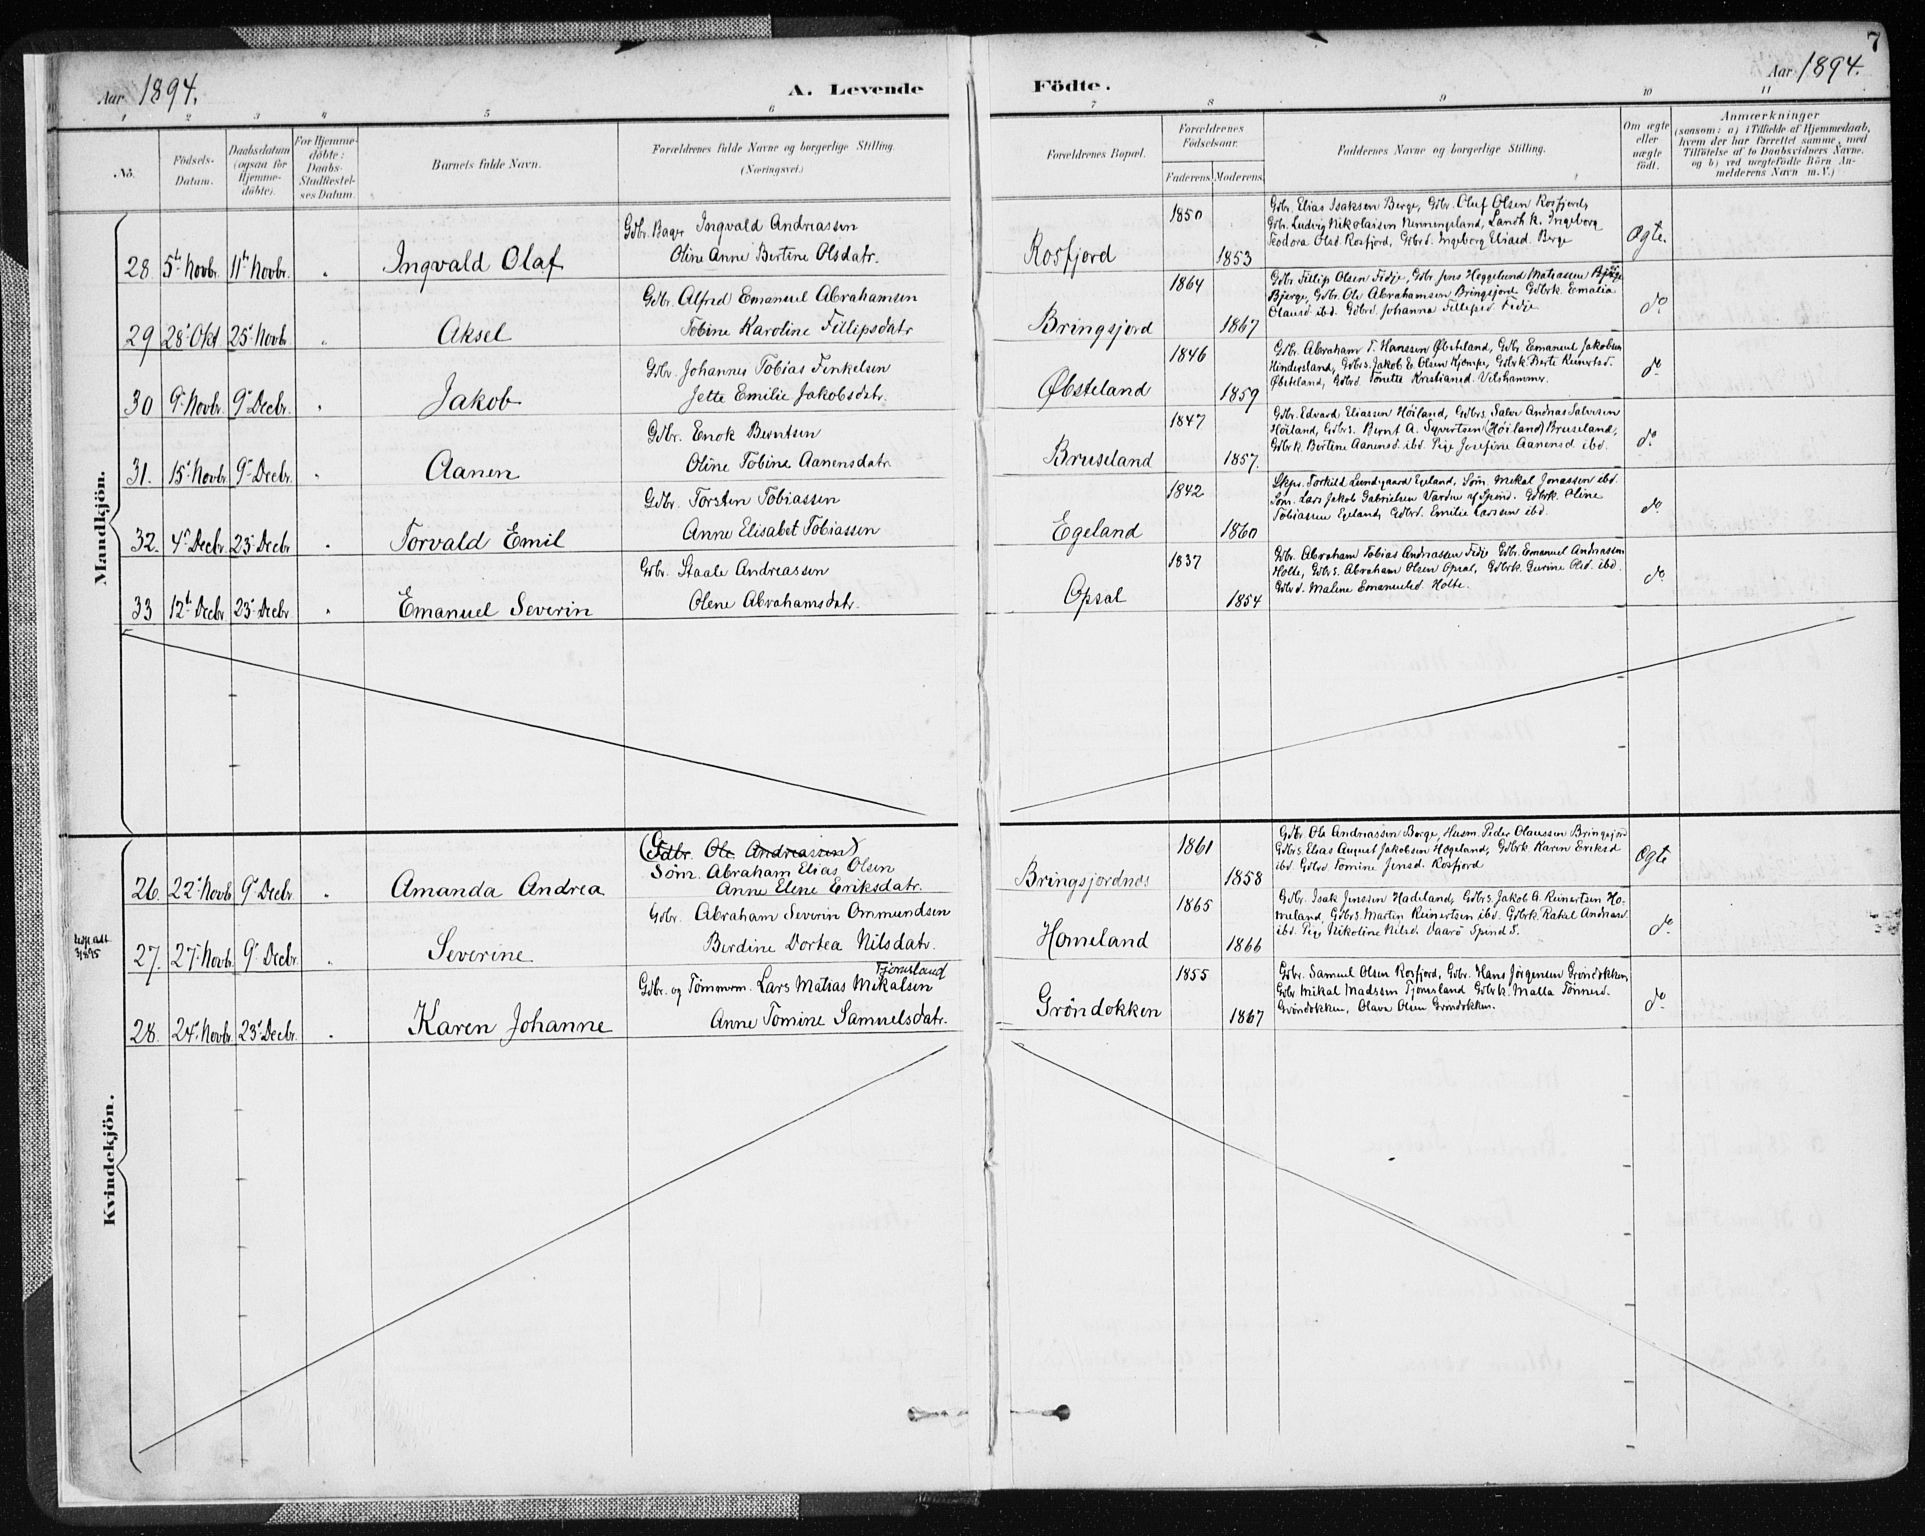 7
Aar 1894.
A. Levende Födte.
Aar 1894.
1 2 3 4 5 6 7 8 9 10 11
No.
Födsels-
Datum.
Daabsdatum
(ogsaa for
Hjemme-
döbte).
For Hjemme-
döbte:
Daabs-
Stadfæstel-
ses Datum.
Barnets fulde Navn.
Forældrenes fulde Navne og borgerlige Stilling.
(Næringsvei.)
Forældrenes Bopæl.
Forældrenes
Födselsaar.
Faderens. Moderens.
Faddernes Navne og borgerlige Stilling.
Om ægte
eller
uægte
födt.
Anmærkninger
(saasom: a) i Tilfælde af Hjemmedaab,
hvem der har forrettet samme, med
Tilföielse af to Daabsvidners Navne.
og b) ved uægtefödte Börn An-
melderens Navn m. V.)
Mandkjön.
28. 5te Novbr. 11te Novbr. " Ingvald Olaf
Gdbr. Bager Ingvald Andreassen
Oline Anne Bertine Olsdatr.
Rosfjord 1850 1853
Gdbr. Elias Isaksen Berge, Gdbr. Oluf Olsen Rosfjord,
Gdbr. Ludvig Nikolaisen Nenningsland, Landh.k. Ingeborg
Teodora Olsd. Rosfjord, Gdbrd. Ingeborg Eliasd. Berge
Ægte.
29 28' Okt 25' Novbr " Aksel
Gdbr. Alfred Emanuel Abrahamsen
Tobine Karoline Fillipsdatr
Bringsjord 1864 1867
Gdbr Fillip Olsen Fidje, Gdbr Jens Heggelund Matiassen
Bjerge, Gdbr. Ole Abrahamsen Bringsjord Gdbrk. Emalia
Olausd ibd. Gdbrd. Johanna Fillipsd Fidje
do
30 9' Novbr. 9' Decbr. " Jakob
Gdbr. Johannes Tobias Finkelsen
Jette Emilie Jakobsdatr.
Øbsteland 1846 1859
Gdbr. Abraham T. Hanssen Øbsteland, Gdbr. Emanuel Jakobsen
Hindersland, Gdbrs. Jakob E. Olsen Kjempe, Gdbrk. Berte Reinertsd.
Øbsteland, Gdbrd. Tonette Kristiansd. Velshammer.
do
31. 15' Novbr 9' Decbr. " Aanen
Gdbr. Enok Berntsen
Oline Tobine Aanensdatr.
Bruseland 1847 1857.
Gdbr. Edvard Eliassen Höiland, Gdbrs. Salve Andreas Salvesen
Höiland, Gdbrs. Bernt A. Syvertsen (Höiland) Bruseland,
Gdbrk Bertine Aanensd. ibd. Pige Josefine Aanensd ibd.
do
32. 4' Decbr. 23' Decbr " Torvald Emil
Gdbr. Torsten Tobiassen
Anne Elisabet Tobiassen
Egeland 1842 1860
Skpr. Torkild Lundgaard Egeland, Söm. Mekal Jonassen ibd.
Söm. Lars Jakob Gabrielsen Vardnø af Spind. Gdbrk. Oline
Tobiassen Egeland, Gdbrd. Emilie Larssen ibd.
do
33 12te Decbr 23' Decbr " Emanuel Severin
Gdbr. Staale Andreassen
Olene Abrahamsdatr.
Opsal 1837 1854
Gdbr. Abraham Tobias Andreassen Fidje Gdbr. Emanuel Andreassen
Holte, Gdbrs. Abraham Olsen Opsal, Gdbrk. Gurine Olsd. ibd.
Gdbrd. Maline Emanuelsd. Holte.
do
Kvindekjön.
26. 22' Novbr 9' Decbr. " Amanda Andrea
(Gdbr. Ole Andreassen)
Söm. Abraham Elias Olsen
Anne Elene Eriksdatr.
Bringsjordnes 1861 1858
Gdbr. Ole Andreassen Berge, Husm. Peder Olaussen Bringsjord
Gdbrs Elias August Jakobsen Högeland, Gdbrk Karen Eriksd
ibd. Gdbrd Tomine Jensd. Rosfjord
Ægte
27. 27' Novbr. 9' Decbr. " Severine
Gdbr. Abraham Severin Ommundsen
Berdine Dortea Nilsdatr.
Homeland 1865 1866
Gdbr. Isak Jenssen Hadeland, Gdbrs. Jakob A. Reinertsen Ho-
meland, Gdbrs. Martin Reinertsen ibd. Gdbrk. Rakel Andreasd.
ibd. Pige Nikoline Nilsd. Vaarö Spind S.
do
28. 24' Novbr. 23' Decbr. " Karen Johanne
Tjomsland
Gdbr. og Tömmerm. Lars Matias Mekalsen
Anne Tomine Samuelsdatr.
Gröndokken 1855 1867
Gdbr. Samuel Olsen Rosfjord, Gdbr. Hans Jörgensen Gröndokken,
Gdbr Mikal Madssen Tjomsland Gdbrk. Malla Tönnesd.
Gröndokken, Olava Olsen Gröndokken.
do